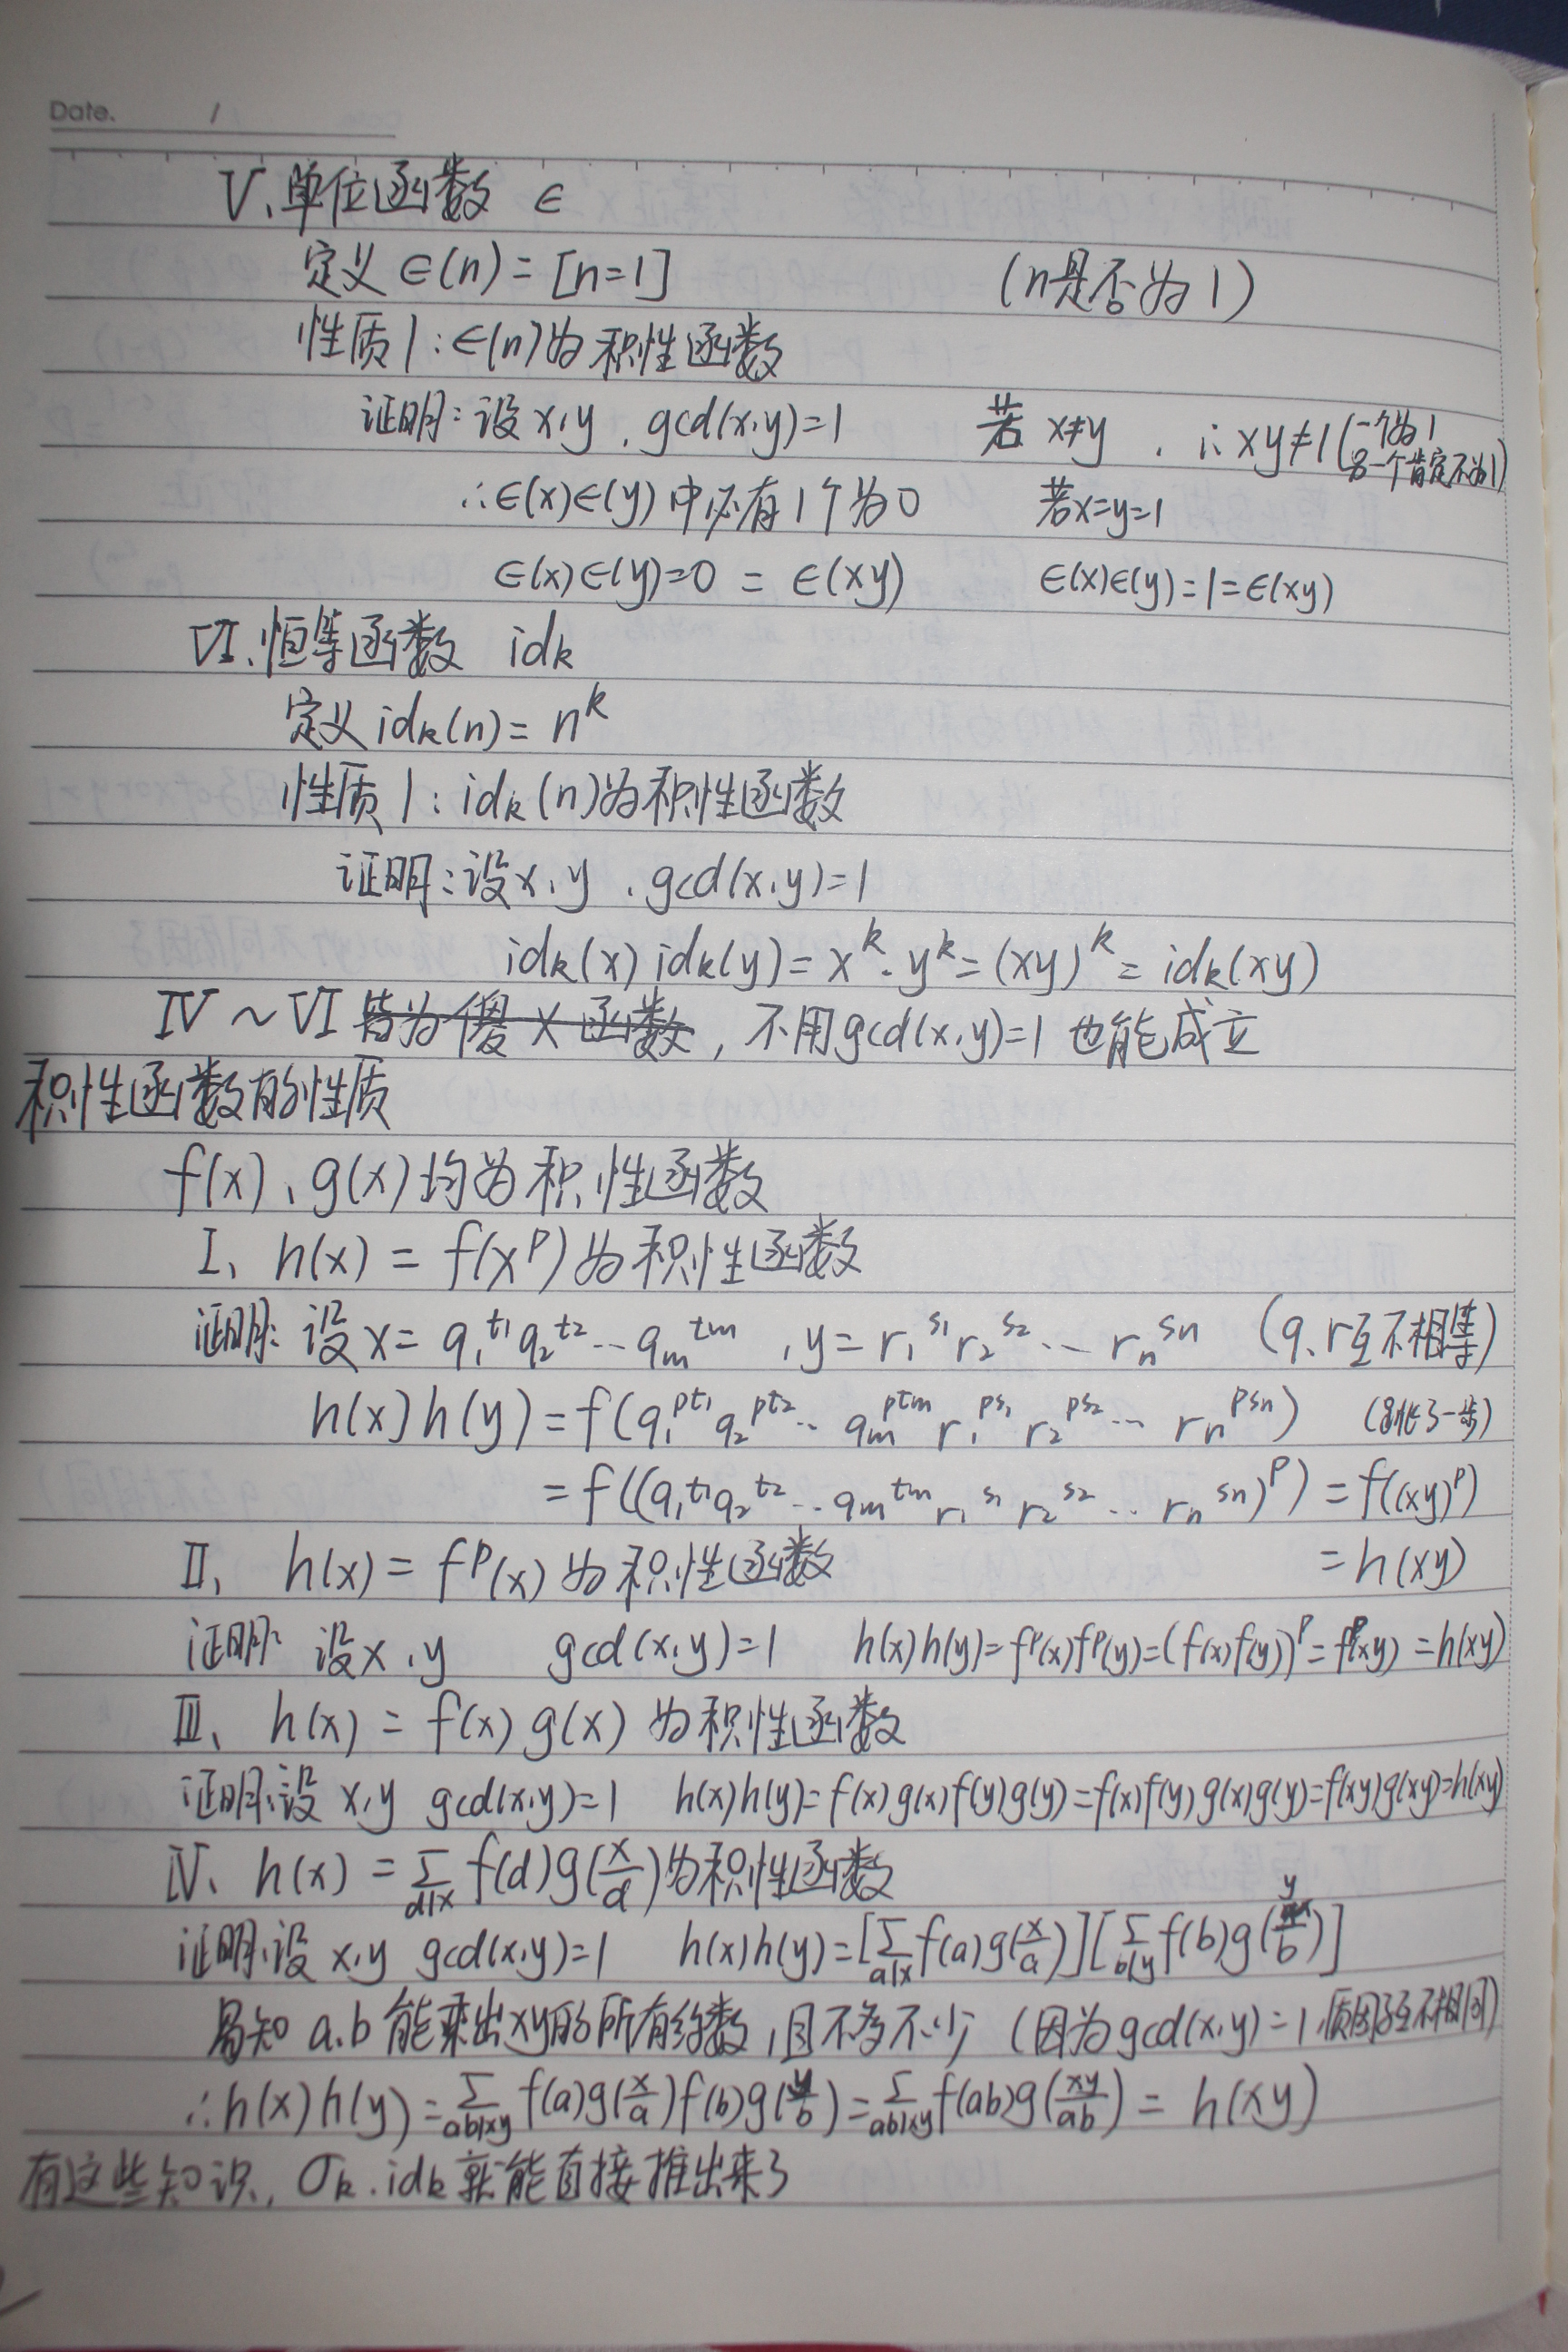 Date. /
V、单位函数 ∈
定义 ∈(n) = [n=1] (n是否为1)
性质1:∈(n)为积性函数
证明:设x,y,gcd(x,y)=1 若 x≠y , ∴xy≠1(一个为1 另一个肯定不为1)
∴∈(x)∈(y)中必有1个为0 若x=y=1
∈(x)∈(y)=0 = ∈(xy) ∈(x)∈(y)=1=∈(xy)
VI、恒等函数 idₖ
定义 idₖ(n) = n^k
性质1:idₖ(n)为积性函数
证明:设x,y,gcd(x,y)=1
idₖ(x) idₖ(y) = x^k · y^k = (xy)^k = idₖ(xy)
IV ~ VI 皆为傻X函数,不用gcd(x,y)=1 也能成立
积性函数有的性质
f(x)、g(x)均为积性函数
I、h(x) = f(x^p)为积性函数
证明:设x = q₁^t₁ q₂^t₂ … qₘ^tₘ , y = r₁^s₁ r₂^s₂ … rₙ^sₙ (q、r互不相等)
h(x)h(y) = f(q₁^pt₁ q₂^pt₂ … qₘ^ptₘ r₁^ps₁ r₂^ps₂ … rₙ^psₙ) (了一步)
= f((q₁^t₁ q₂^t₂ … qₘ^tₘ r₁^s₁ r₂^s₂ … rₙ^sₙ)^p) = f((xy)^p)
II、h(x) = f^p(x)为积性函数 = h(xy)
证明:设x,y gcd(x,y)=1 h(x)h(y)=f^p(x)f^p(y)=(f(x)f(y))^p=f^p(xy)=h(xy)
III、h(x) = f(x)g(x)为积性函数
证明:设x,y gcd(x,y)=1 h(x)h(y)=f(x)g(x)f(y)g(y)=f(x)f(y)g(x)g(y)=f(xy)g(xy)=h(xy)
IV、h(x) = ∑_{d|x} f(d)g(x/d)为积性函数
证明:设x,y gcd(x,y)=1 h(x)h(y)=[∑_{a|x} f(a)g(x/a)][∑_{b|y} f(b)g(y/b)]
易知a,b能乘出xy的所有约数,且不多不少(因为gcd(x,y)=1,质因子互不相同)
∴h(x)h(y)=∑_{ab|xy} f(a)g(x/a)f(b)g(y/b)=∑_{ab|xy} f(ab)g(xy/ab) = h(xy)
有这些知识,σₖ、idₖ就能直接推出来了